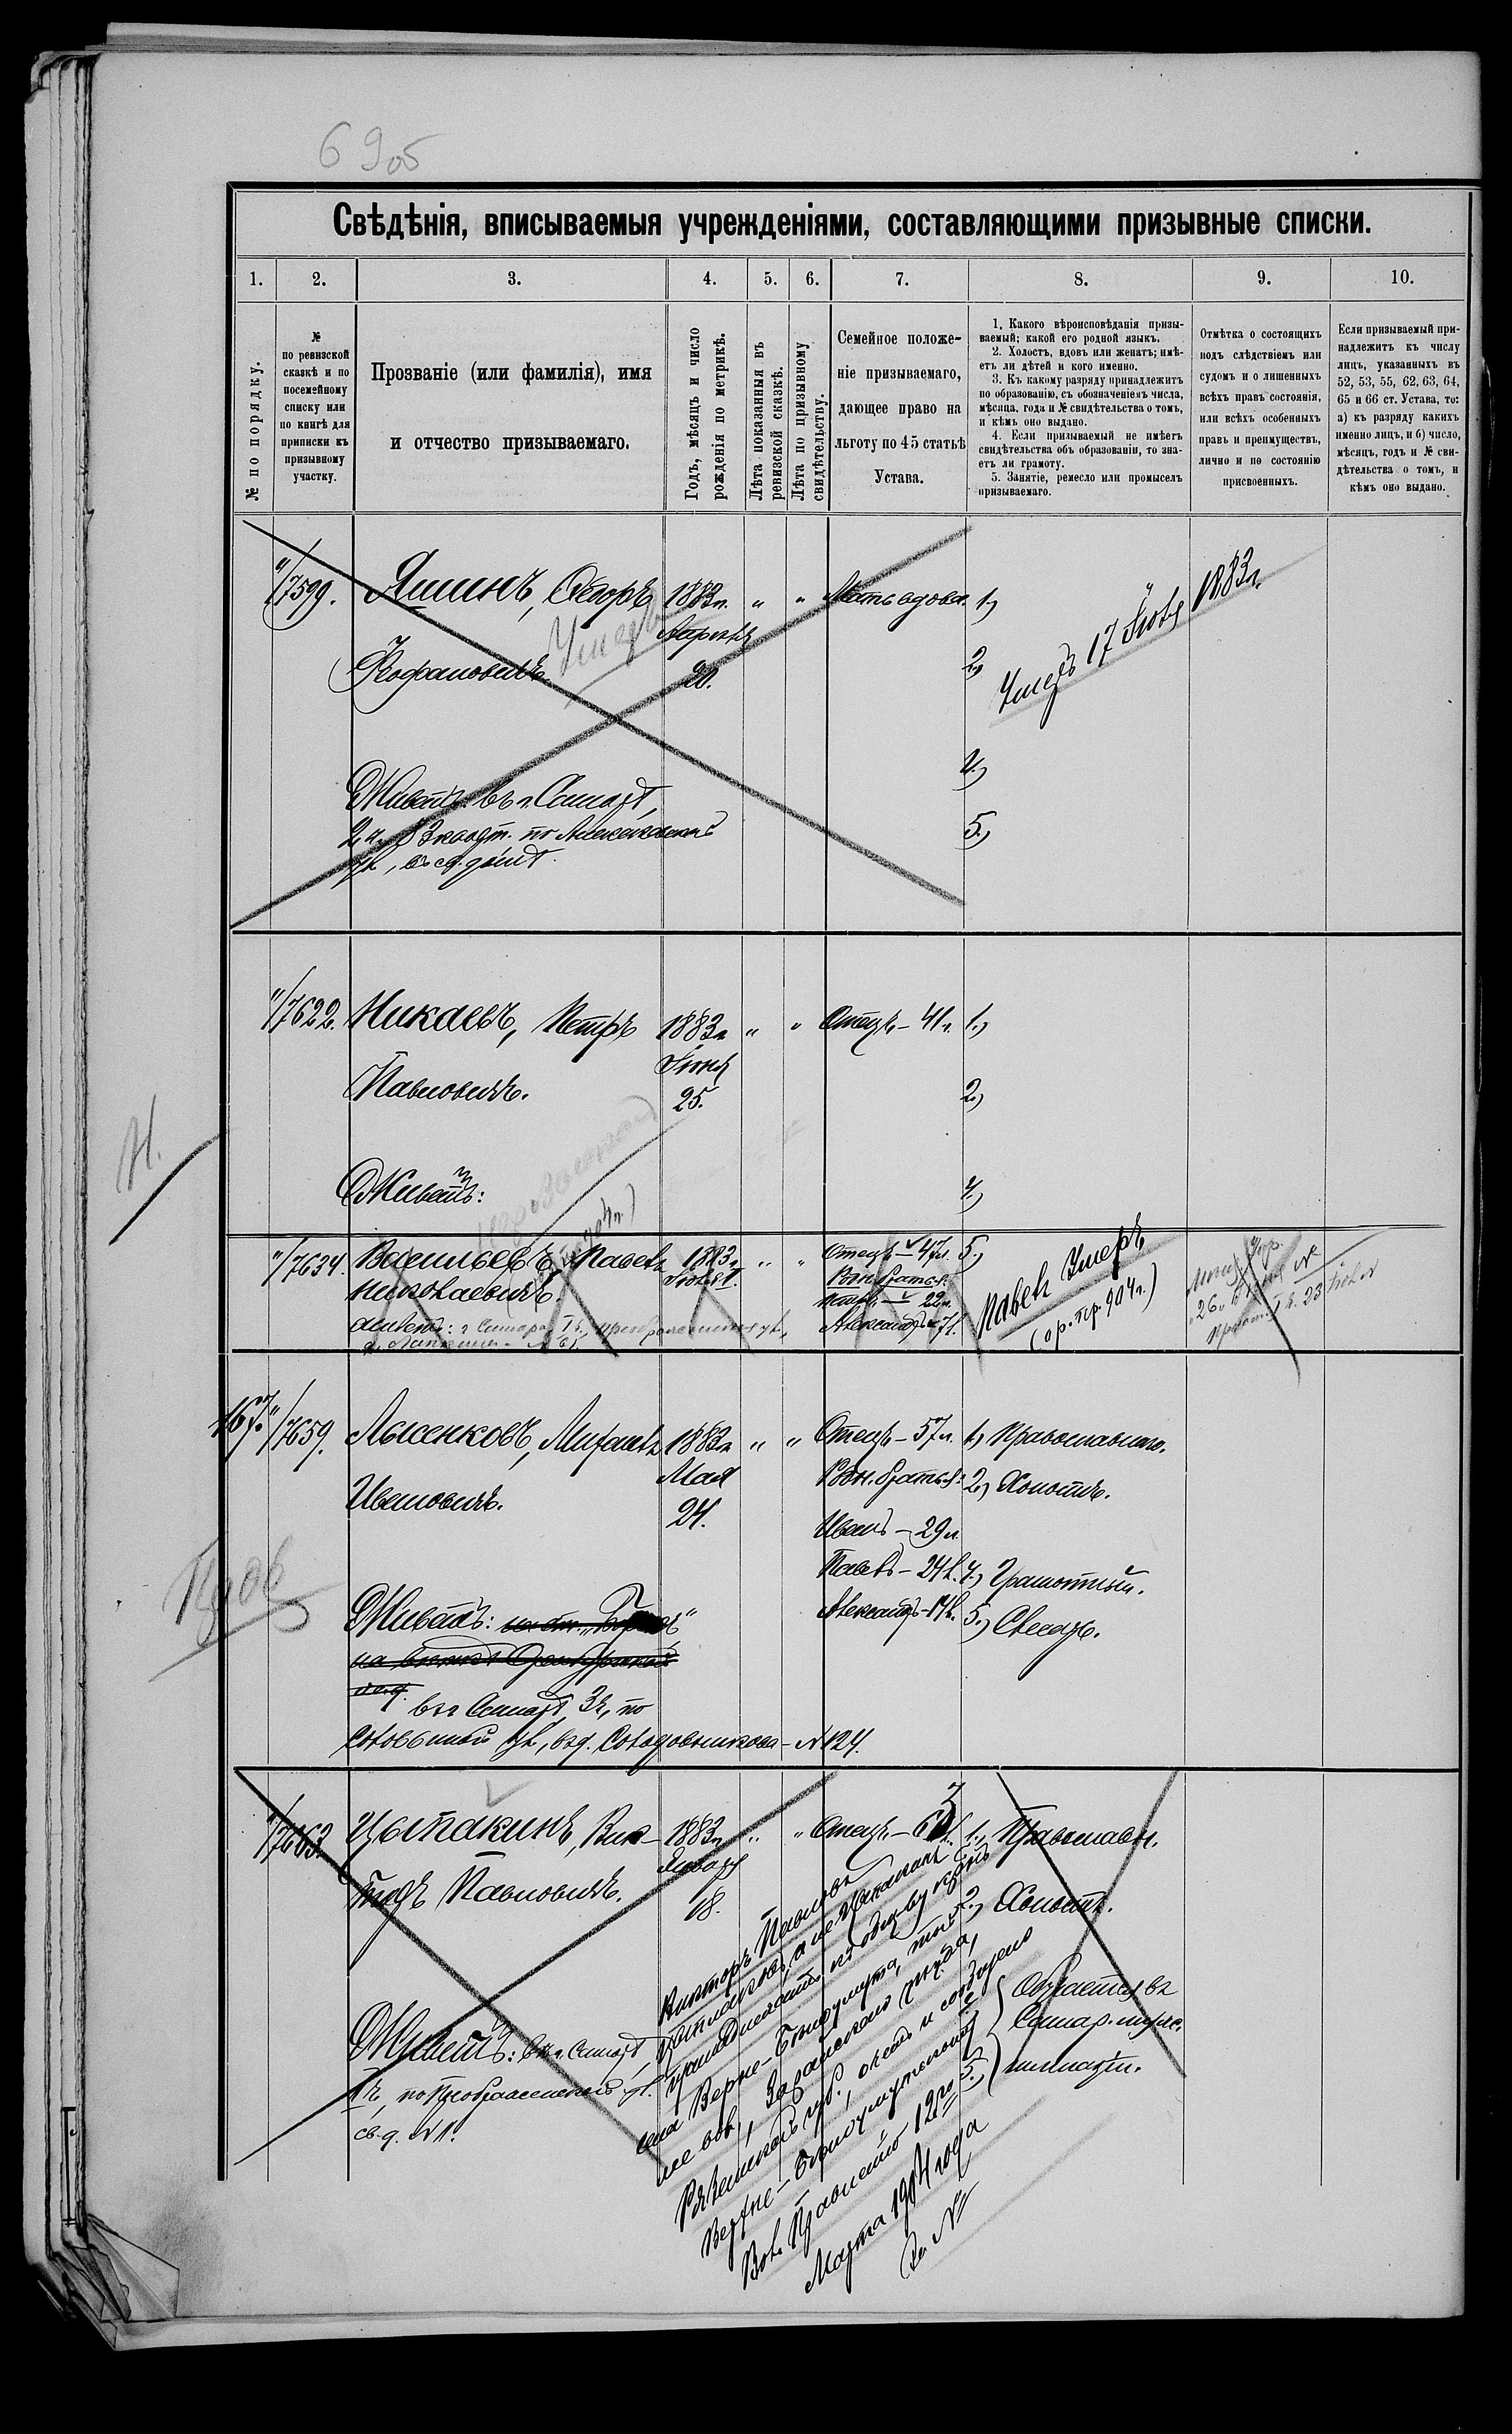 69об
Свѣдѣнія, вписываемыя учрежденіями, составляющими призывные списки.
1. 2. 3. 4. 5. 6. 7. 8. 9. 10.
№ по порядку.
№
по ревизской
сказкѣ и по
посемейному
списку или
по книгѣ для
приписки къ
призывному
участку.
Прозваніе (или фамилія), имя
и отчество призываемаго.
Годъ, мѣсяцъ и число
рожденія по метрикѣ.
Лѣта показанныя въ
ревизской сказкѣ.
Лѣта по призывному
свидѣтельству.
Семейное положе-
ніе призываемаго,
дающее право на
льготу по 45 статьѣ
Устава.
1. Какого вѣроисповѣданія призы-
ваемый; какой его родной языкъ.
2. Холостъ, вдовъ или женатъ; имѣ-
етъ ли дѣтей и кого именно.
3. Къ какому разряду принадлежитъ
по образованію, съ обозначеніемъ числа,
мѣсяца, года и № свидѣтельства о томъ,
и кѣмъ оно выдано.
4. Если призываемый не имѣетъ
свидѣтельства объ образованіи, то зна-
етъ ли грамоту.
5. Занятіе, ремесло или промыселъ
призываемаго.
Отмѣтка о состоящихъ
подъ слѣдствіемъ или
судомъ и о лишенныхъ
всѣхъ правъ состоянія,
или всѣхъ особенныхъ
правъ и преимуществъ,
лично и по состоянію
присвоенныхъ.
Если призываемый при-
надлежитъ къ числу
лицъ, указанныхъ въ
52, 53, 55, 62, 63, 64,
65 и 66 ст. Устава, то:
а) къ разряду какихъ
именно лицъ, и б) число,
мѣсяцъ, годъ и № сви-
дѣтельства о томъ, и
кѣмъ оно выдано.
"/7599. Яшинъ, Ѳедоръ 1883г. " " Мать вдова. 1.)
Апрѣля
20.
Умеръ
2.)
Умеръ 17 Іюля 1883г.
4.)
Живетъ: въ г. Самарѣ,
2 ч. 3 кварт. по Алексѣевской
ул., въ с. домѣ.
5.)
"/7622. Никаевъ, Петръ 1883г. " " Отецъ - 41г. 1.)
Іюня
Павловичъ. 25. 2.)
Живетъ: 4.)
Н.
"/7634. Васильевъ, Павелъ 1883г. " " Отецъ - 47л. 5.)
Николаевичъ. Іюля 1. Родн. братья:
Петръ - 22л.
Живетъ: г. Самара, I ч., Преображенская ул., Александръ - 7л.
№ 61.
Павелъ Умеръ
(ор. пр. 904г.)
167. "/7659. Лысенковъ, Михаилъ 1883г. " " Отецъ - 57л. 1.) Православнаго.
Мая Родн. братья: 2.) Холостъ.
Ивановичъ. 24.
Иванъ - 29л.
Павелъ - 24л. 4.) Грамотный.
Александръ - 17л. 5.) Слесарь.
Живетъ:
въ г. Самарѣ, 3 ч., по
Соловьиной ул., въ д. Солодовникова - № 124.
"/7663. Цыпакинъ, Вик- 1883г. " " Отецъ - 63 1.) Православн.
Января
торъ Павловичъ. 18. 2.) Холостъ.
Живетъ: въ г. Самарѣ,
I ч., по Преображенской ул.
св. д. № 1.
Обучается въ
Самар. муж.
гимназіи.
5.)
Викторъ Павловъ
принадлежитъ къ обществу крест.
села Верхне-Бѣлоомута, той
же вол., Зарайскаго уѣзда,
Рязанской губ., о чемъ и сообщено
Верхне-Бѣлоомутскому
Вол. Правленію 12го
Марта 1904 года
за №